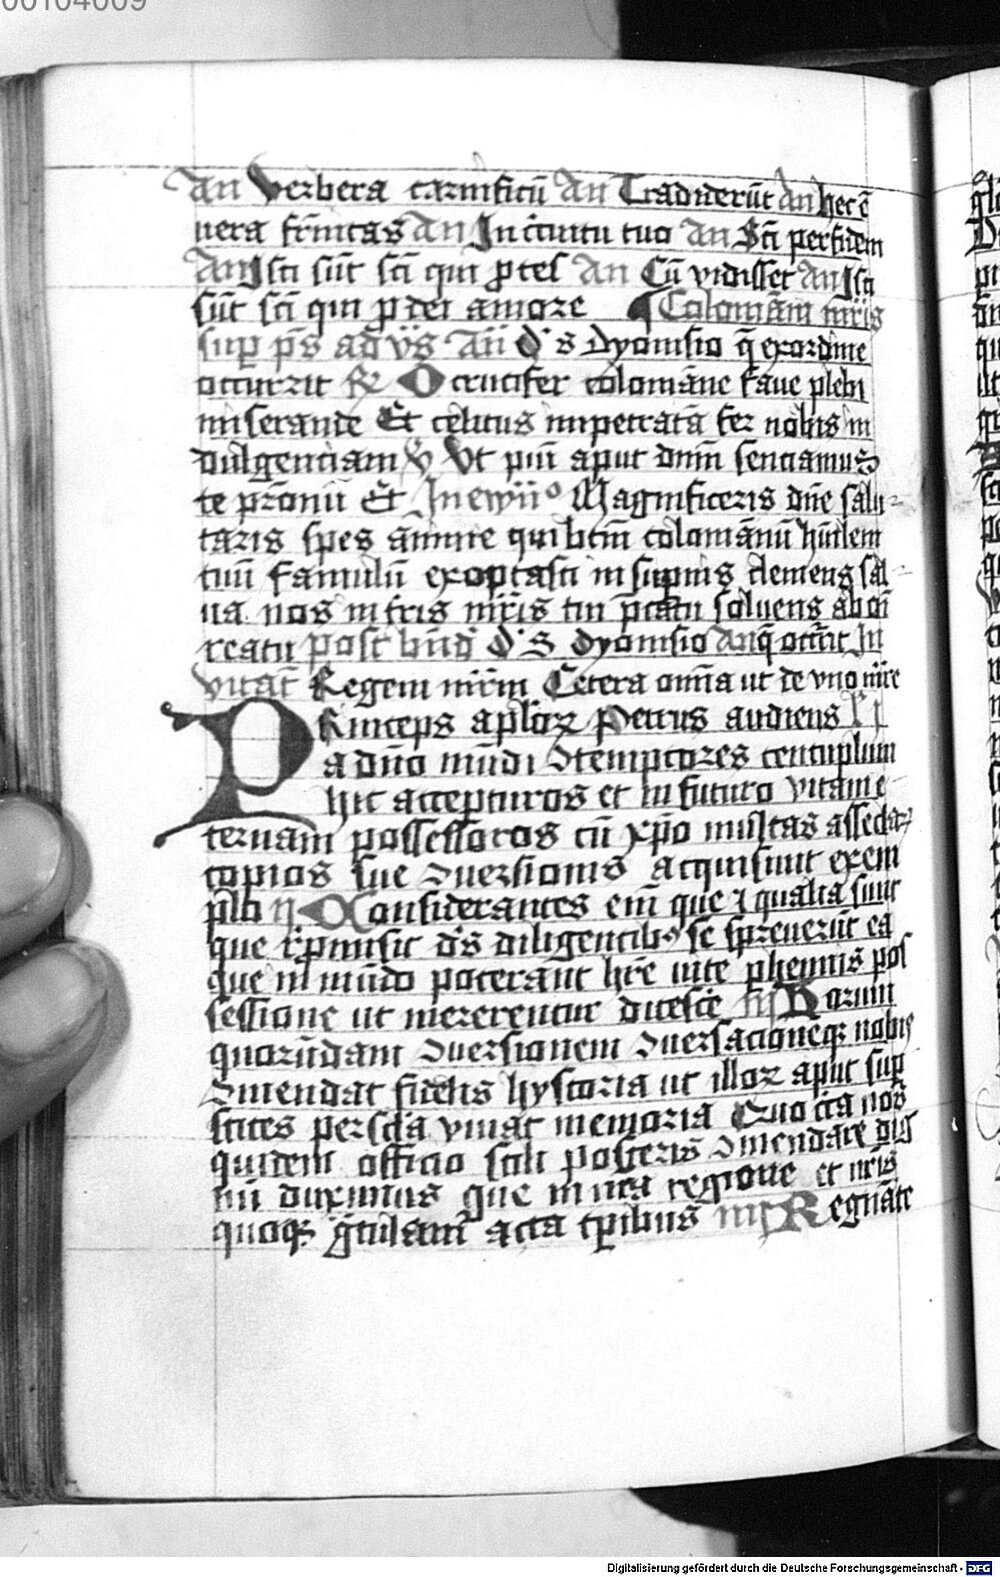 00104009
An Verbera carnificū An Tradiderūt An hec ē
uera fr̄nitas An In ciuitū tuo An Sc̄i per fidem
An Isti sūt sc̄i qui ꝓ tes An Cū vidisset An Isti
sūt sc̄i qui ꝓ dei amore Colomāni mr̄is
sup ps̄ ad vs̄ An O's dyonisio q̄ exordine
occurrit R O crucifer colomāne faue plebi
miserande Et celitus impetratā fer nobis in
dulgenciam V Vt piū aput dnm̄ senciamus
te pr̄onū Et In ewͥͥ Magnificeris dn̄e salu
taris spes anime qui btm̄ colomānū hūilem
tuū famulū exoptasti in supnis clemens sal
ua nos in fris mr̄is tui p̄catu soluens ab oī
reatu post O's dyonisio An q̄ occūit In
vitat̄ Regem mr̄m Cetera om̄a ut de vno mr̄e
Princeps aploꝝ Petrus audiens
a dn̄o mūdi ꝯtemptores centuplum
hic accepturos et in futuro vitam e
ternam possessoros cū xp̄o multas assedaꝝ
copias sue ꝯuersionis acquisiuit exem
plo II Considerantes em̄ que ⁊ qualia sunt
que rep̄misit d's diligentibꝰ se spreuerūt ea
que in mūdo poterant hr̄e uite phennis pos
sessione ut mererentur ditescē III Harum
quorūdam ꝯuersionem ꝯuersacionēqꝫ nobis
ꝯmendat fidelis hystoria ut illoꝝ aput sup
stites vivat memoria Quo cc̄a nos
quidem officio posteris ꝯmendare dig
nū duximus que in nr̄a regione et nr̄is
quoqꝫ acta tp̄ibus IIII Regnāte
Digitalisierung gefördert durch die Deutsche Forschungsgemeinschaft - DFG